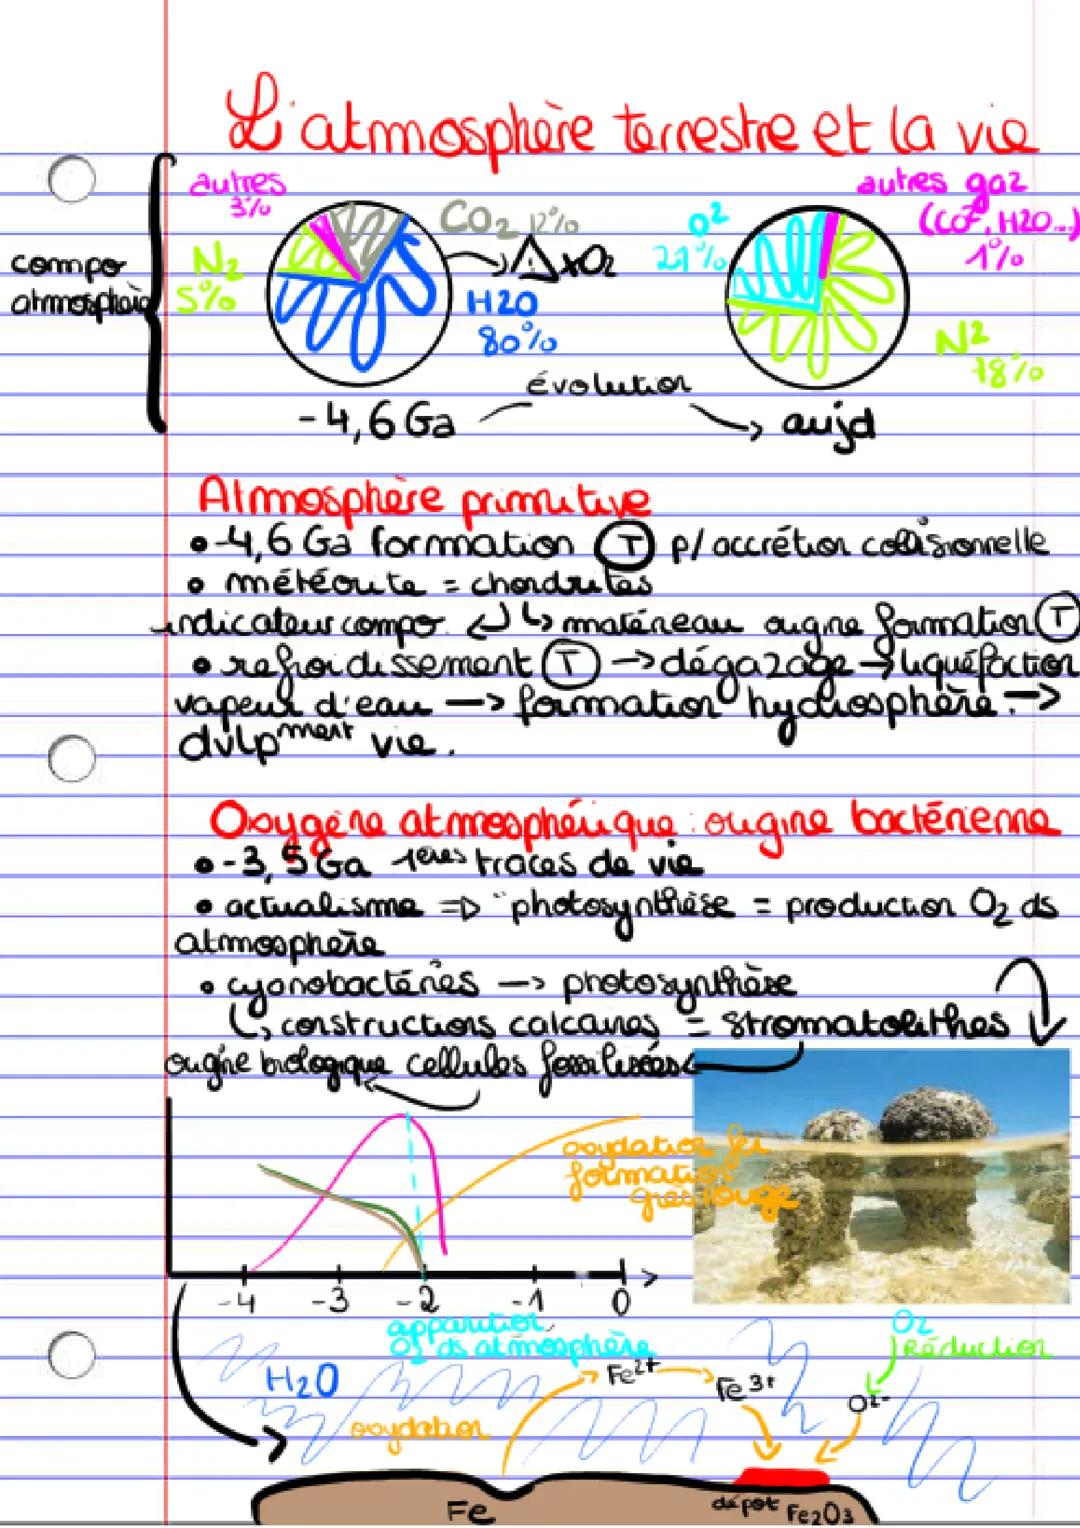 L'atmosphère terrestre et la vie
autres
3%
N2
5%
CO2 12%
xO2
H2O
80%
compo
atmosphère
O2
21%
autres gaz
(CO2, H2O...)
1%
N2
78%
évolution
-4,6 Ga
aujd
Atmosphère primitive
• -4,6 Ga formation (T) p/ accrétion collisionnelle
• météorite = chondrites
indicateur compo. ↲ ↳ matéreau origine formation (T)
• refroidissement (T) → dégazage → liquéfaction
vapeur d'eau → formation hydrosphère. →
dvlpment vie.
Oxygène atmosphérique : origine bactérienne
• -3,5 Ga 1ères traces de vie
• actualisme => "photosynthèse = production O2 ds
atmosphère
• cyanobactéries → photosynthèse
↳ constructions calcaires = stromatolithes
origine biologique cellules fossilisées
oxydation fer
formation
grès rouge
-4 -3 -2 -1 0
apparition
O2 ds atmosphère
H2O
oxydation
Fe2+
Fe3+
O2
Réduction
O2-
Fe
dépot Fe2O3